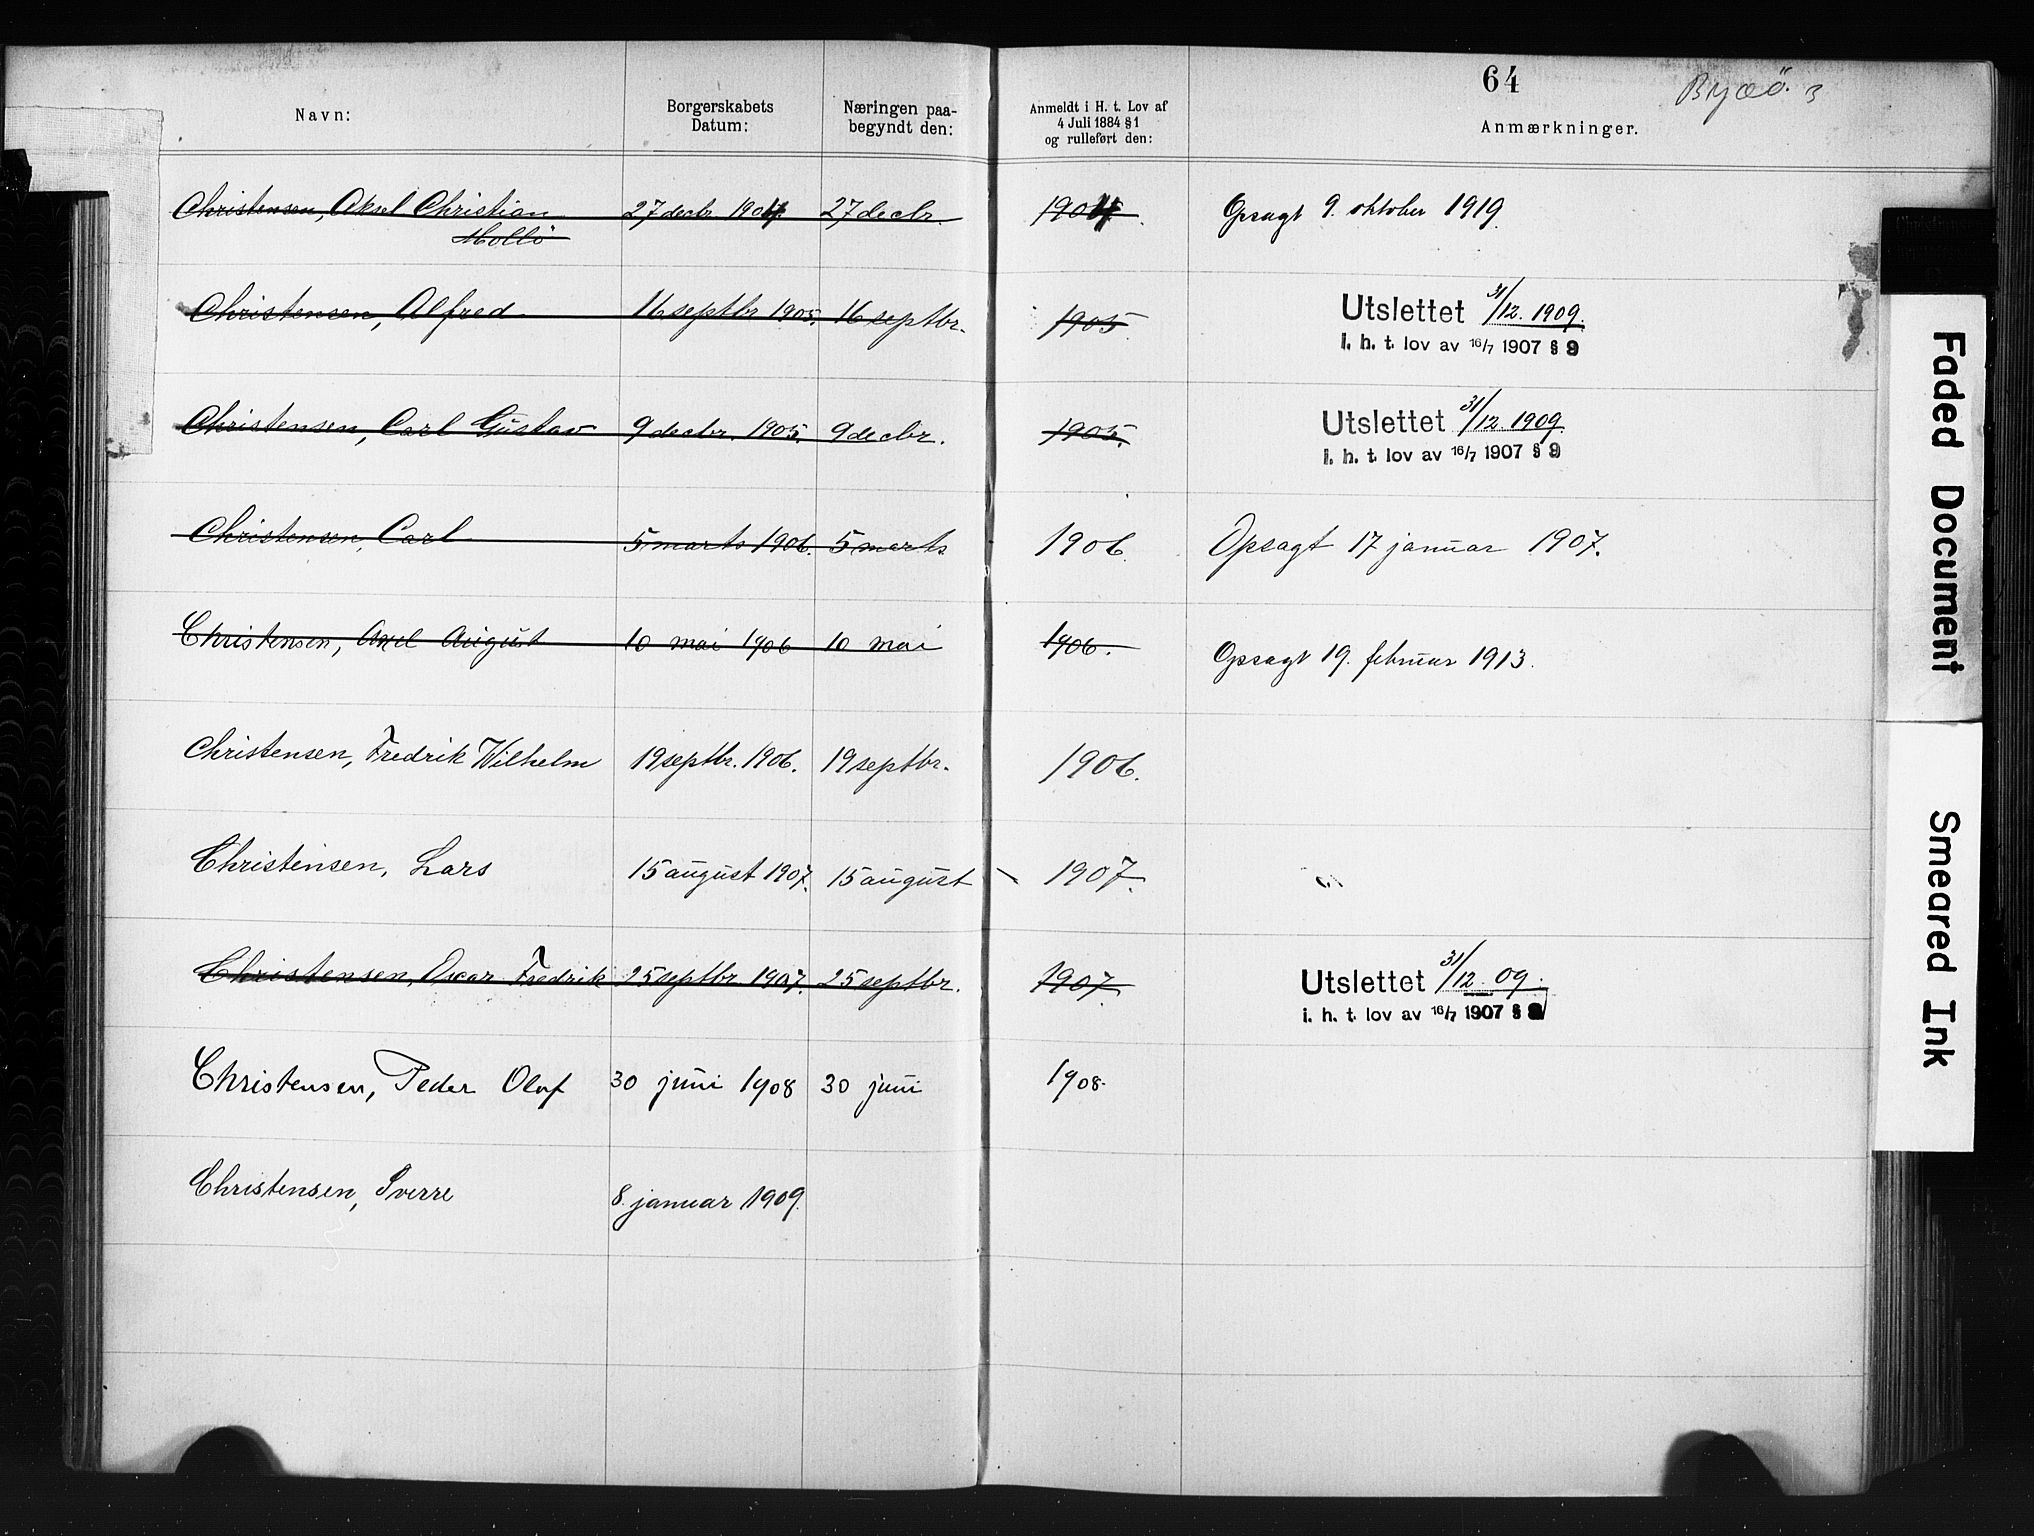 64
Navn:
Borgerskabets Datum:
Næringen paa-
begyndt den:
Anmeldt i H. t. Lov af
4 Juli 1884 § 1
og rulleført den:
Anmærkninger.
Christensen, Aksel Christian 27 decbr. 1904 27 decbr. 1904. Opsagt 9. oktober 1919.
Mollö
Christensen, Alfred 16 septbr 1905. 16 septbr. 1905. Utslettet 31/12. 1909.
i. h. t. lov av 16/7 1907 § 9
Christensen, Carl Gustav 9 decbr. 1905. 9 decbr. 1905. Utslettet 31/12 1909.
i. h. t. lov av 16/7 1907 § 9
Christensen, Carl 5 marts 1906. 5 marts 1906. Opsagt 17 januar 1907.
Christensen, Axel August 10 mai 1906 10 mai 1906. Opsagt 19. februar 1913.
Christensen, Fredrik Wilhelm 19 septbr. 1906. 19 septbr. 1906.
Christensen, Lars 15 august 1907. 15 august 1907.
Christensen, Oscar Fredrik 25 septbr. 1907. 25 septbr. 1907. Utslettet 31/12 09.
i. h. t. lov av 16/7 1907 §
Christensen, Peder Olaf 30 juni 1908 30 juni 1908.
Christensen, Sverre 8. januar 1909.
Faded Document
Smeared Ink